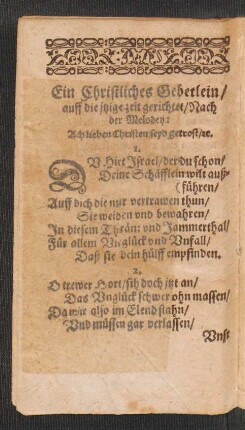 Ein Christliches Gebetlein/
auff die jtzige zeit gerichtet/ Nach
der Melodey:
Ach lieben Christen seyd getrost/ ꝛc.
1.
DV Hirt Israel/ der du schon/
Deine Schäfflein wilt auß-
(führen/
Auff dich die wir vertrawen thun/
Sie weiden vnd bewahren/
In diesem Thrän: vnd Jammerthal/
Für allem Vnglück vnd Vnfall/
Daß sie dein hülff empfinden.
2.
O trewer Hort/ sih doch jtzt an/
Das Vnglück schwer ohn massen/
Da wir also im Elend stahn/
Vnd müssen gar verlassen/
Vnst